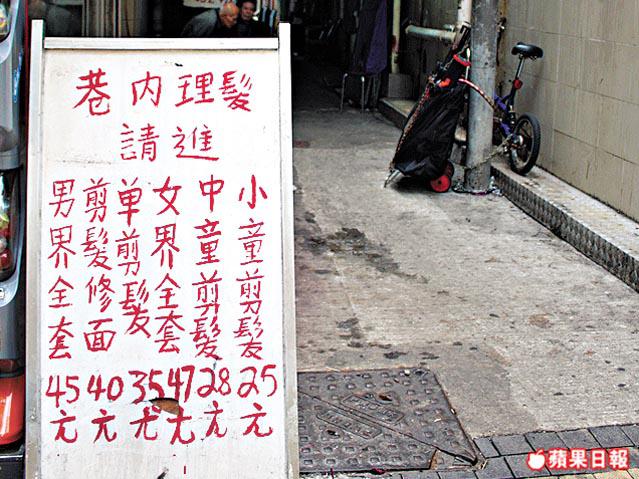 巷内理髮
請進
小童剪髮25元
中童剪髮28元
女界全套47元
单剪髮35元
剪髮修面40元
男界全套45元
蘋果日報